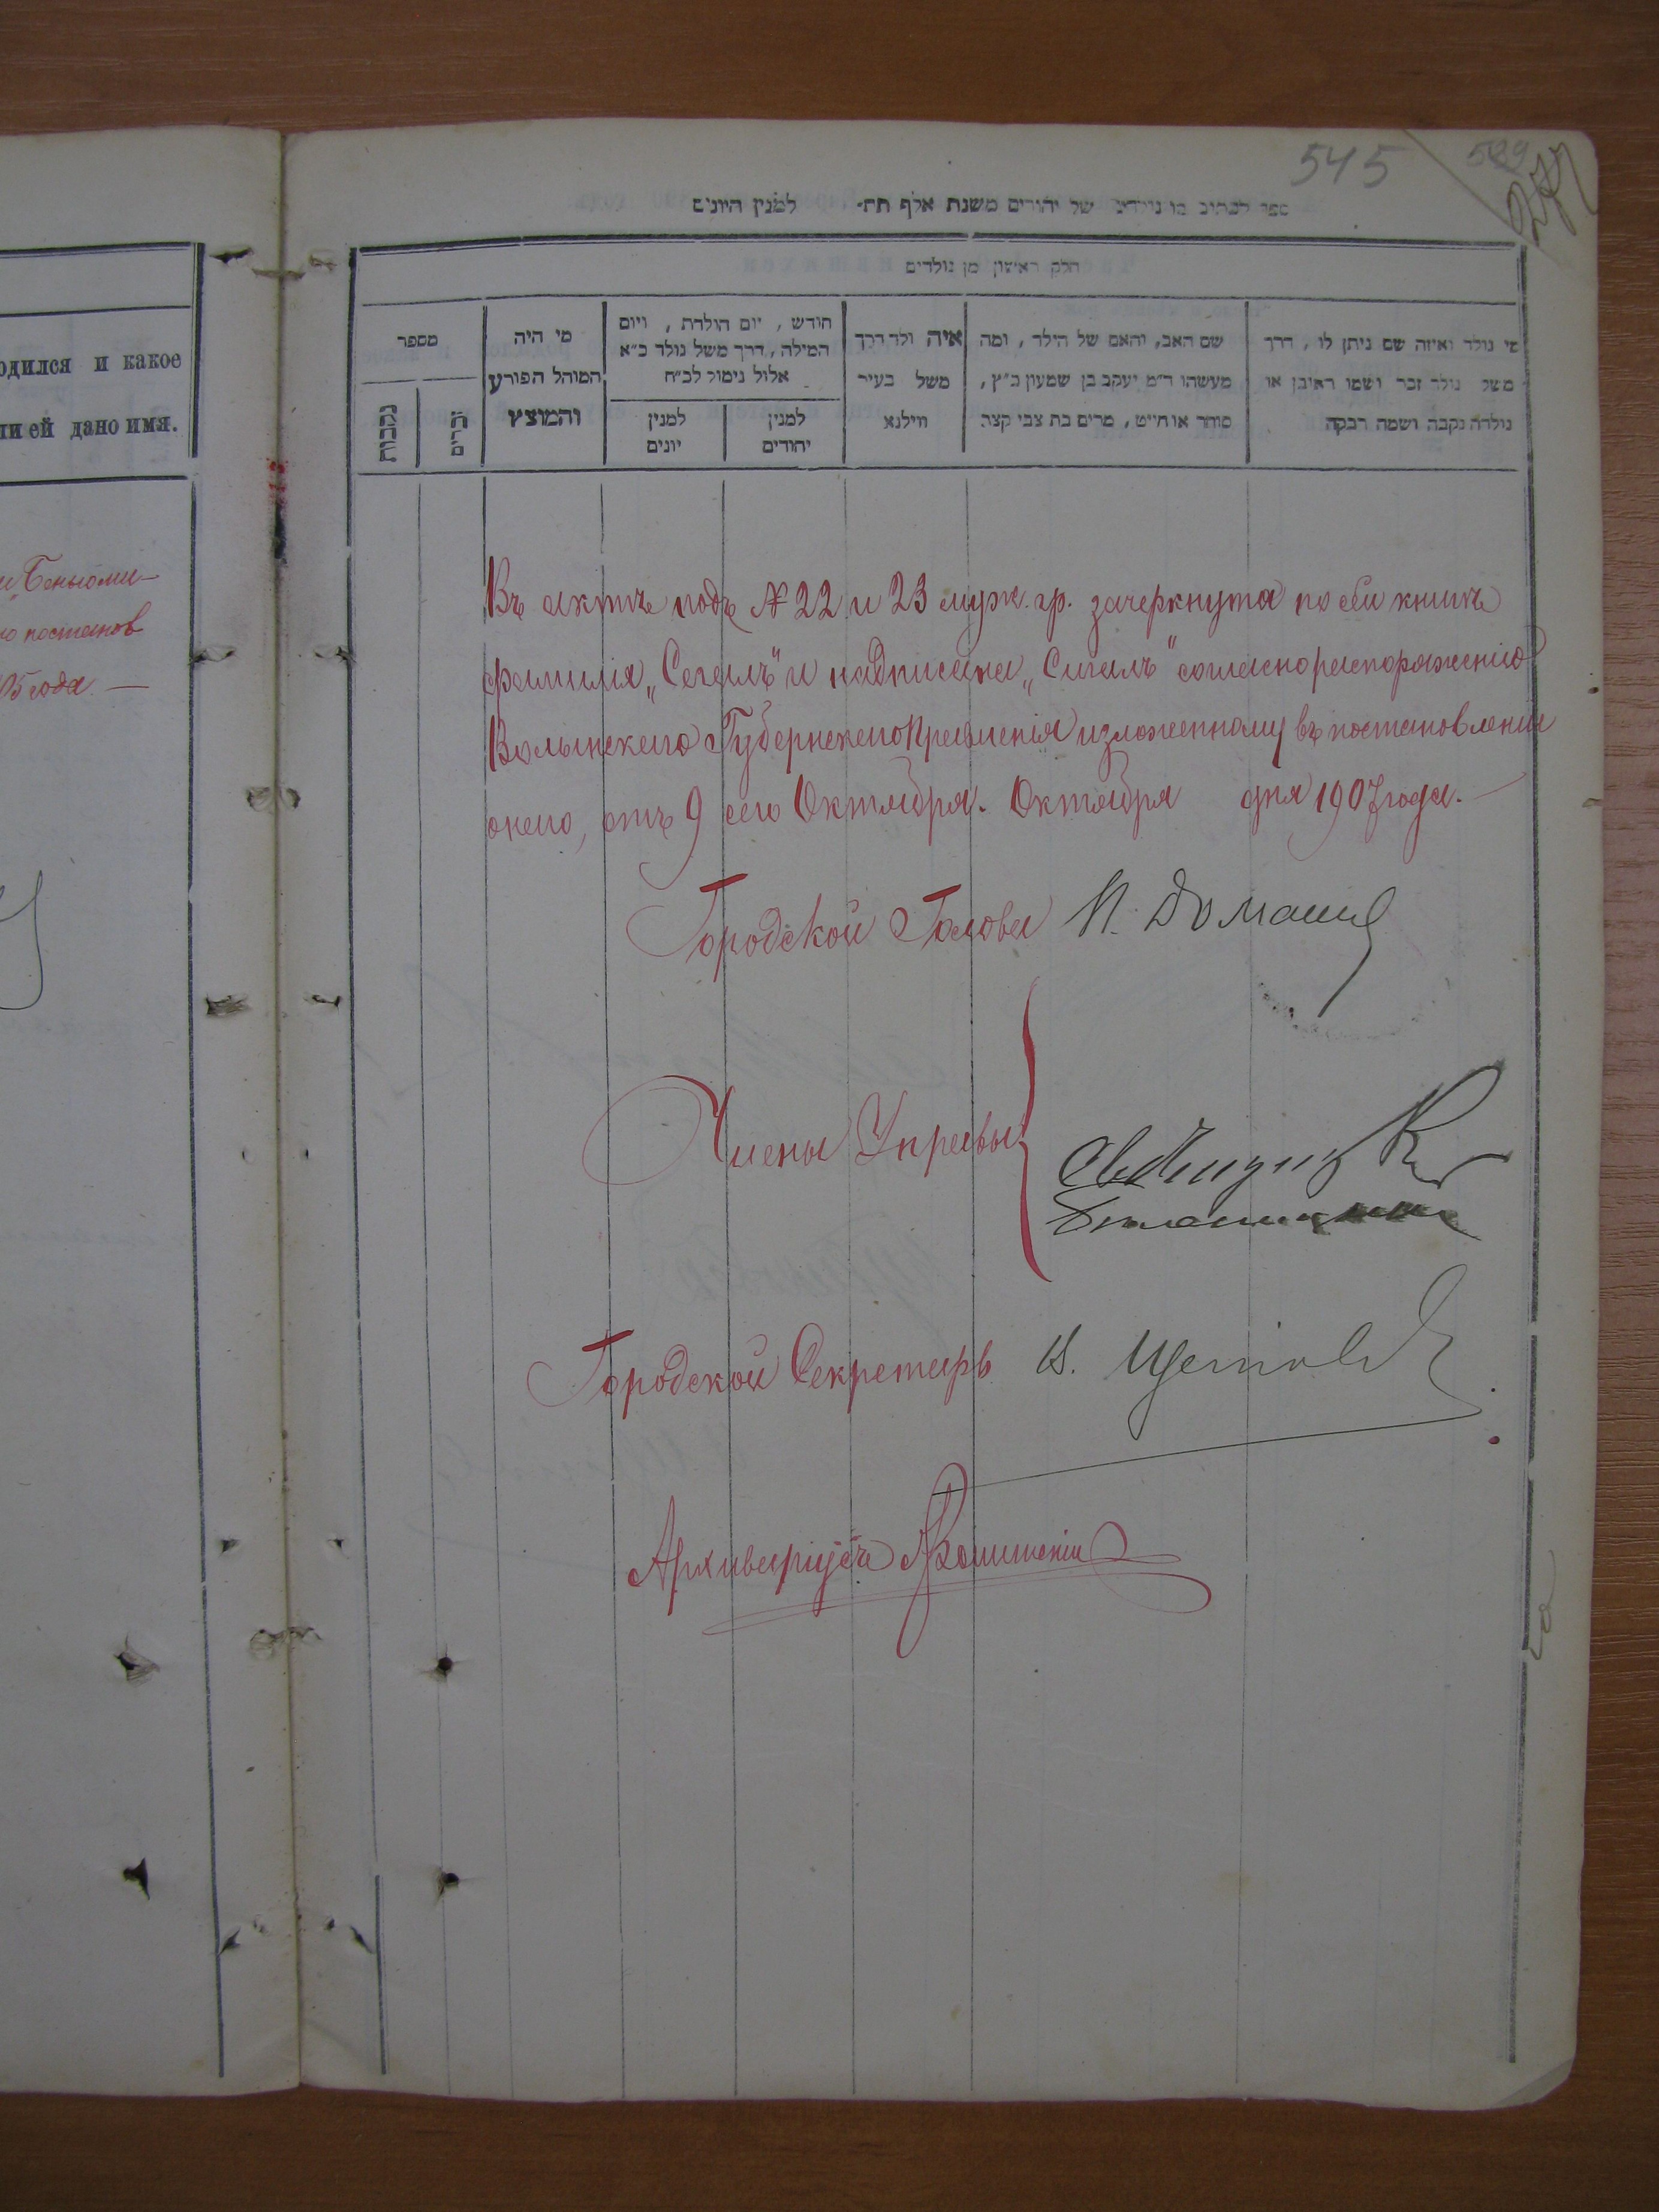 545
ספר לכתוב בו נולדים של יהודים משנת אלף תת־ למנין היונים
חלק ראשון מן נולדים
מי נולד ואיזה שם ניתן לו, דרך
משל נולד זכר ושמו ראובן או
נולדה נקבה ושמה רבקה
שם האב, והאם של הילד, ומה
מעשהו ד״מ יעקב בן שמעון כ״ץ,
סוחר או חייט, מרים בת צבי קצב
איה ולד דרך
משל בעיר
ווילנא
חודש, יום הולדת, ויום
המילה, דרך משל נולד כ״א
אלול נימול לכ״ח
למנין
יהודים
למנין
יונים
מי היה
המוהל הפורע
והמוצץ
מספר
זכרים
נקבות
одился и какое
ли ей дано имя.
и Беньоми-
по постанов
05 года. —
Въ актѣ подъ № 22 и 23 муж. гр. зачеркнута по сей книгѣ
фамилія „Сегалъ" и надписана „Сигалъ" согласно распоряженію
Волынскаго Губернскаго Правленія изложенному въ постановленіи
онаго, отъ 9 сего Октября. Октября дня 1907 года. —
Городской Голова П.
Члены Управы
Городской Секретарь
Архиваріусъ